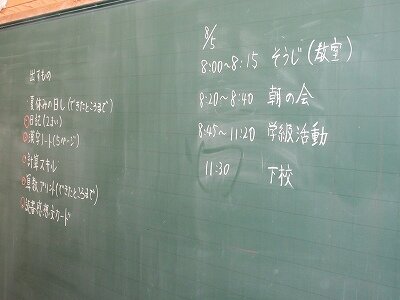 出すもの
夏休みの日し(できたところまで)
①日記(2まい)
②漢字ノート(5ページ)
③計算スキル
④算数プリント(できたところまで)
⑤読書感想文カード
8/5
8:00~8:15 そうじ(教室)
8:20~8:40 朝の会
8:45~11:20 学級活動
11:30 下校